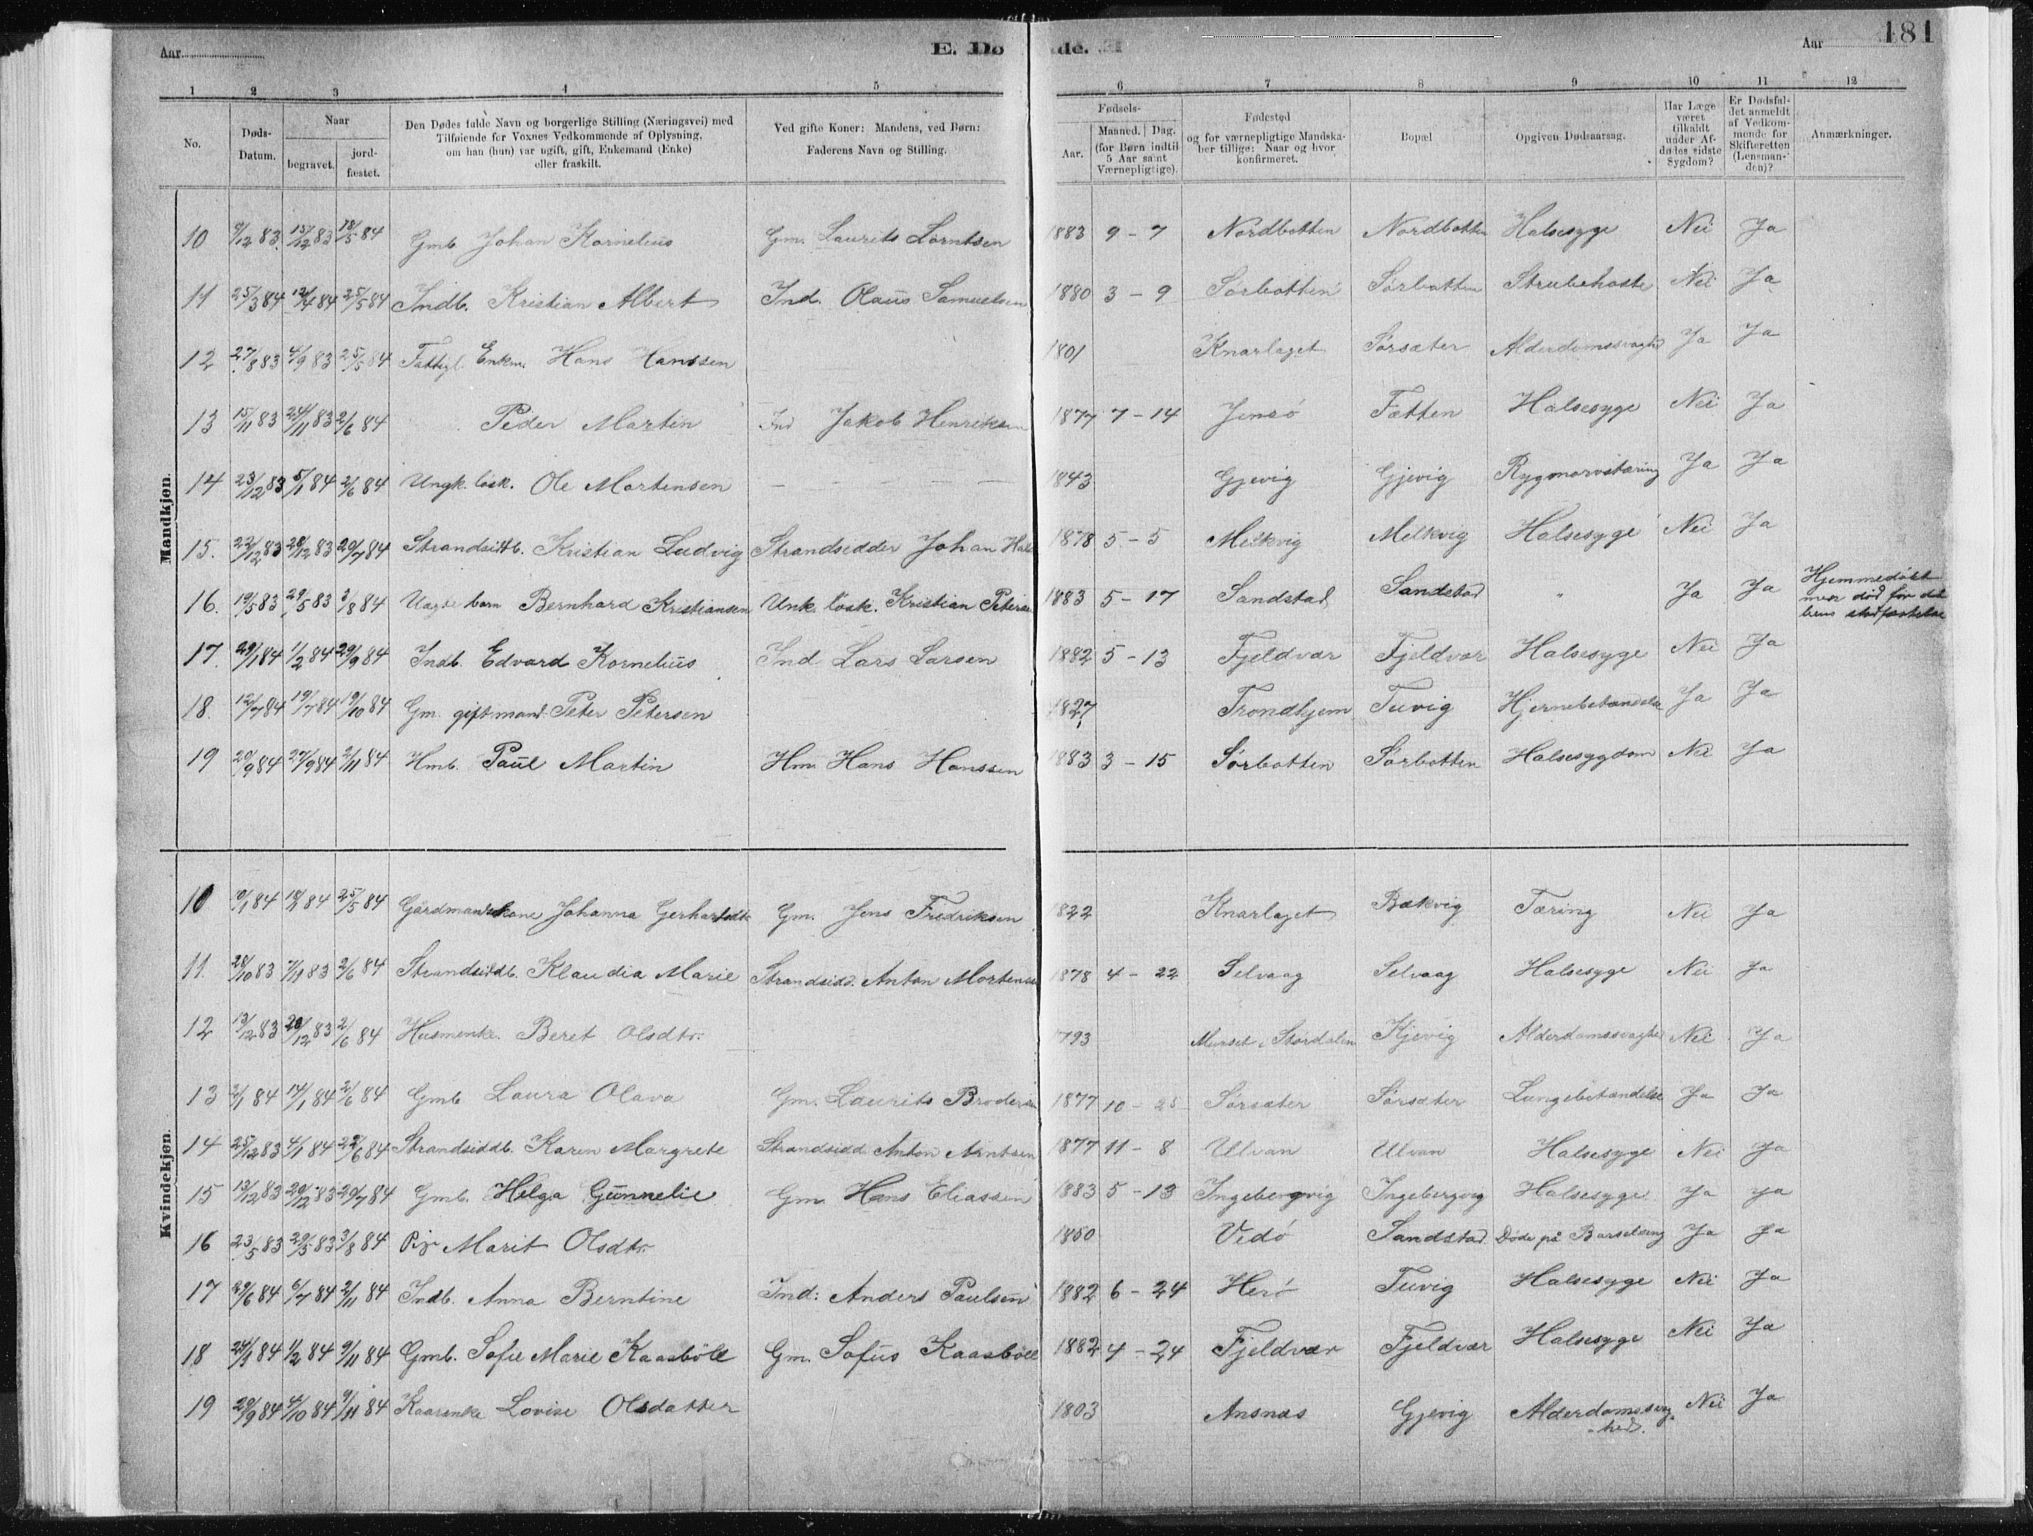 Aar
E. Dø
de.
Aar
181
1 2 3 4 5 6 7 8 9 10 11 12
No.
Døds-
Datum.
Naar
begravet.
jord-
fæstet.
Den Dødes fulde Navn og borgerlige Stilling (Næringsvei) med
Tilføiende for Voxnes Vedkommende af Oplysning,
om han (hun) var ugift, gift, Enkemand (Enke)
eller fraskilt.
Ved gifte Koner: Mandens, ved Børn:
Faderens Navn og Stilling.
Fødsels-
Aar.
Maaned. Dag.
(for Børn indtil
5 Aar samt
Værnepligtige).
Fødested
og for værnepligtige Mandska-
ber tillige: Naar og hvor
konfirmeret.
Bopæl
Opgiven Dødsaarsag.
Har Læge
været
tilkaldt
under Af-
dødes sidste
Sygdom?
Er Dødsfal-
det anmeldt
af Vedkom-
mende for
Skifteretten
(Lensman-
den)?
Anmærkninger.
Mandkjøn.
10 9/12 83. 15/12 83 18/5 84 Gmb Johan Kornelius Gm. Laurits Lorntsen 1883 9 - 7 Nordbotten Nordbotten Halsesyge Nei Ja
11 25/3 84 12/4 84 25/5 84 Indb. Kristian Albert Ind. Olaus Samuelsen 1880 3 - 9 Sørbotten Sørbotten Strubehoste Nei Ja
12 27/8 83 4/9 83 25/5 84 Fattigl. Enkm. Hans Hanssen 1801 Knarlaget Sørsæter Alderdomssvagh Ja Ja
13 15/11 83 24/11 83 2/6 84 Peder Martin Ind Jakob Henriksen 1877 7 - 14 Jensø Fætten Halsesyge Nei Ja
14 23/12 83 5/1 84 2/6 84 Ungk. løsk. Ole Mortensen — — — 1843 Gjevig Gjevig Rygmarvstæring Ja Ja
15. 22/12 83 28/12 83 20/7 84 Strandsittb. Kristian Ludvig Strandsidder Johan 1878 5 - 5 Melkvig Melkvig Halsesyge Nei Ja
16. 19/5 83 29/5 83 3/8 84 Uægte barn Bernhard Kristiansen Unk. løsk. Kristian Petersen 1883 5 - 17 Sandstad Sandstad " Ja Ja Hjemmedøbt
men død før
17. 29/1 84 1/2 84 29/9 84 Indb. Edvard Kornelius Ind Lars Larsen 1882 5 - 13 Fjeldvær Fjeldvær Halsesyge Nei Ja
18. 12/7 84 19/7 84 19/10 84 Gm. giftmand Peter Petersen 1827 Trondhjem Tuvig Hjernebetændelse Ja Ja
19 20/9 84 27/9 84 2/11 84 Hmb. Paul Martin Hm. Hans Hanssen 1883 3 - 15 Sørbotten Sørbotten Halsesygdom Nei Ja
Kvindekjøn.
10 9/1 84 18/1 84 25/5 84 Gårdmandskone Johanna Gm. Jens Fredriksen 1822 Knarlaget Bækvig Tæring Nei Ja
11. 28/10 83 7/11 83 2/6 84 Strandsiddb. Klaudia Marie Strandsidd. Anton Mortensen 1878 4 - 22 Selvaag Selvaag Halsesyge Nei Ja
12 13/12 83 20/12 83 2/6 84 Husmenke. Beret Olsdtr. 1793 Størdalen Kjevig Alderdomssvaghe Nei Ja
13 2/1 84 14/1 84 2/6 84 Gmb Laura Olava Gm. Laurits Brodersen 1877 10 - 25 Sørsæter Sørsæter Lungebetændelse Ja Ja
14 25/12 83 4/1 84 22/6 84 Strandsiddb. Karen Margrete Strandsidd Anton Arntsen 1877 11 - 8 Ulvan Ulvan Halsesyge Nei Ja
15 13/12 83 20/12 83 20/7 84 Gmb. Helga Gunnelie Gm. Hans Eliassen 1883 5 - 13 Ingebergvig Ingebergvig Halsesyge Ja Ja
16 23/5 83 29/5 83 3/8 84 Pige Marit Olsdtr. 1850 Vedø Sandstad Døde på Barselseng Ja Ja
17 29/6 84 6/7 84 2/11 84 Indb. Anna Berntine Ind: Anders Paulsen 1882 6 - 24 Herø Tuvig Halsesyge Nei Ja
18 24/1 84 1/2 84 9/11 84 Gmb. Sofie Marie Kaasbøll Gm. Sofus Kaasbøll 1882 4 - 24 Fjeldvær Fjeldvær Halsesyge Nei Ja
19 28/9 84 4/10 84 9/11 84 Kaarenke Lovise Olsdatter 1803 Ansnæs Gjevig Alderdomssvag- Nei Ja
hed.